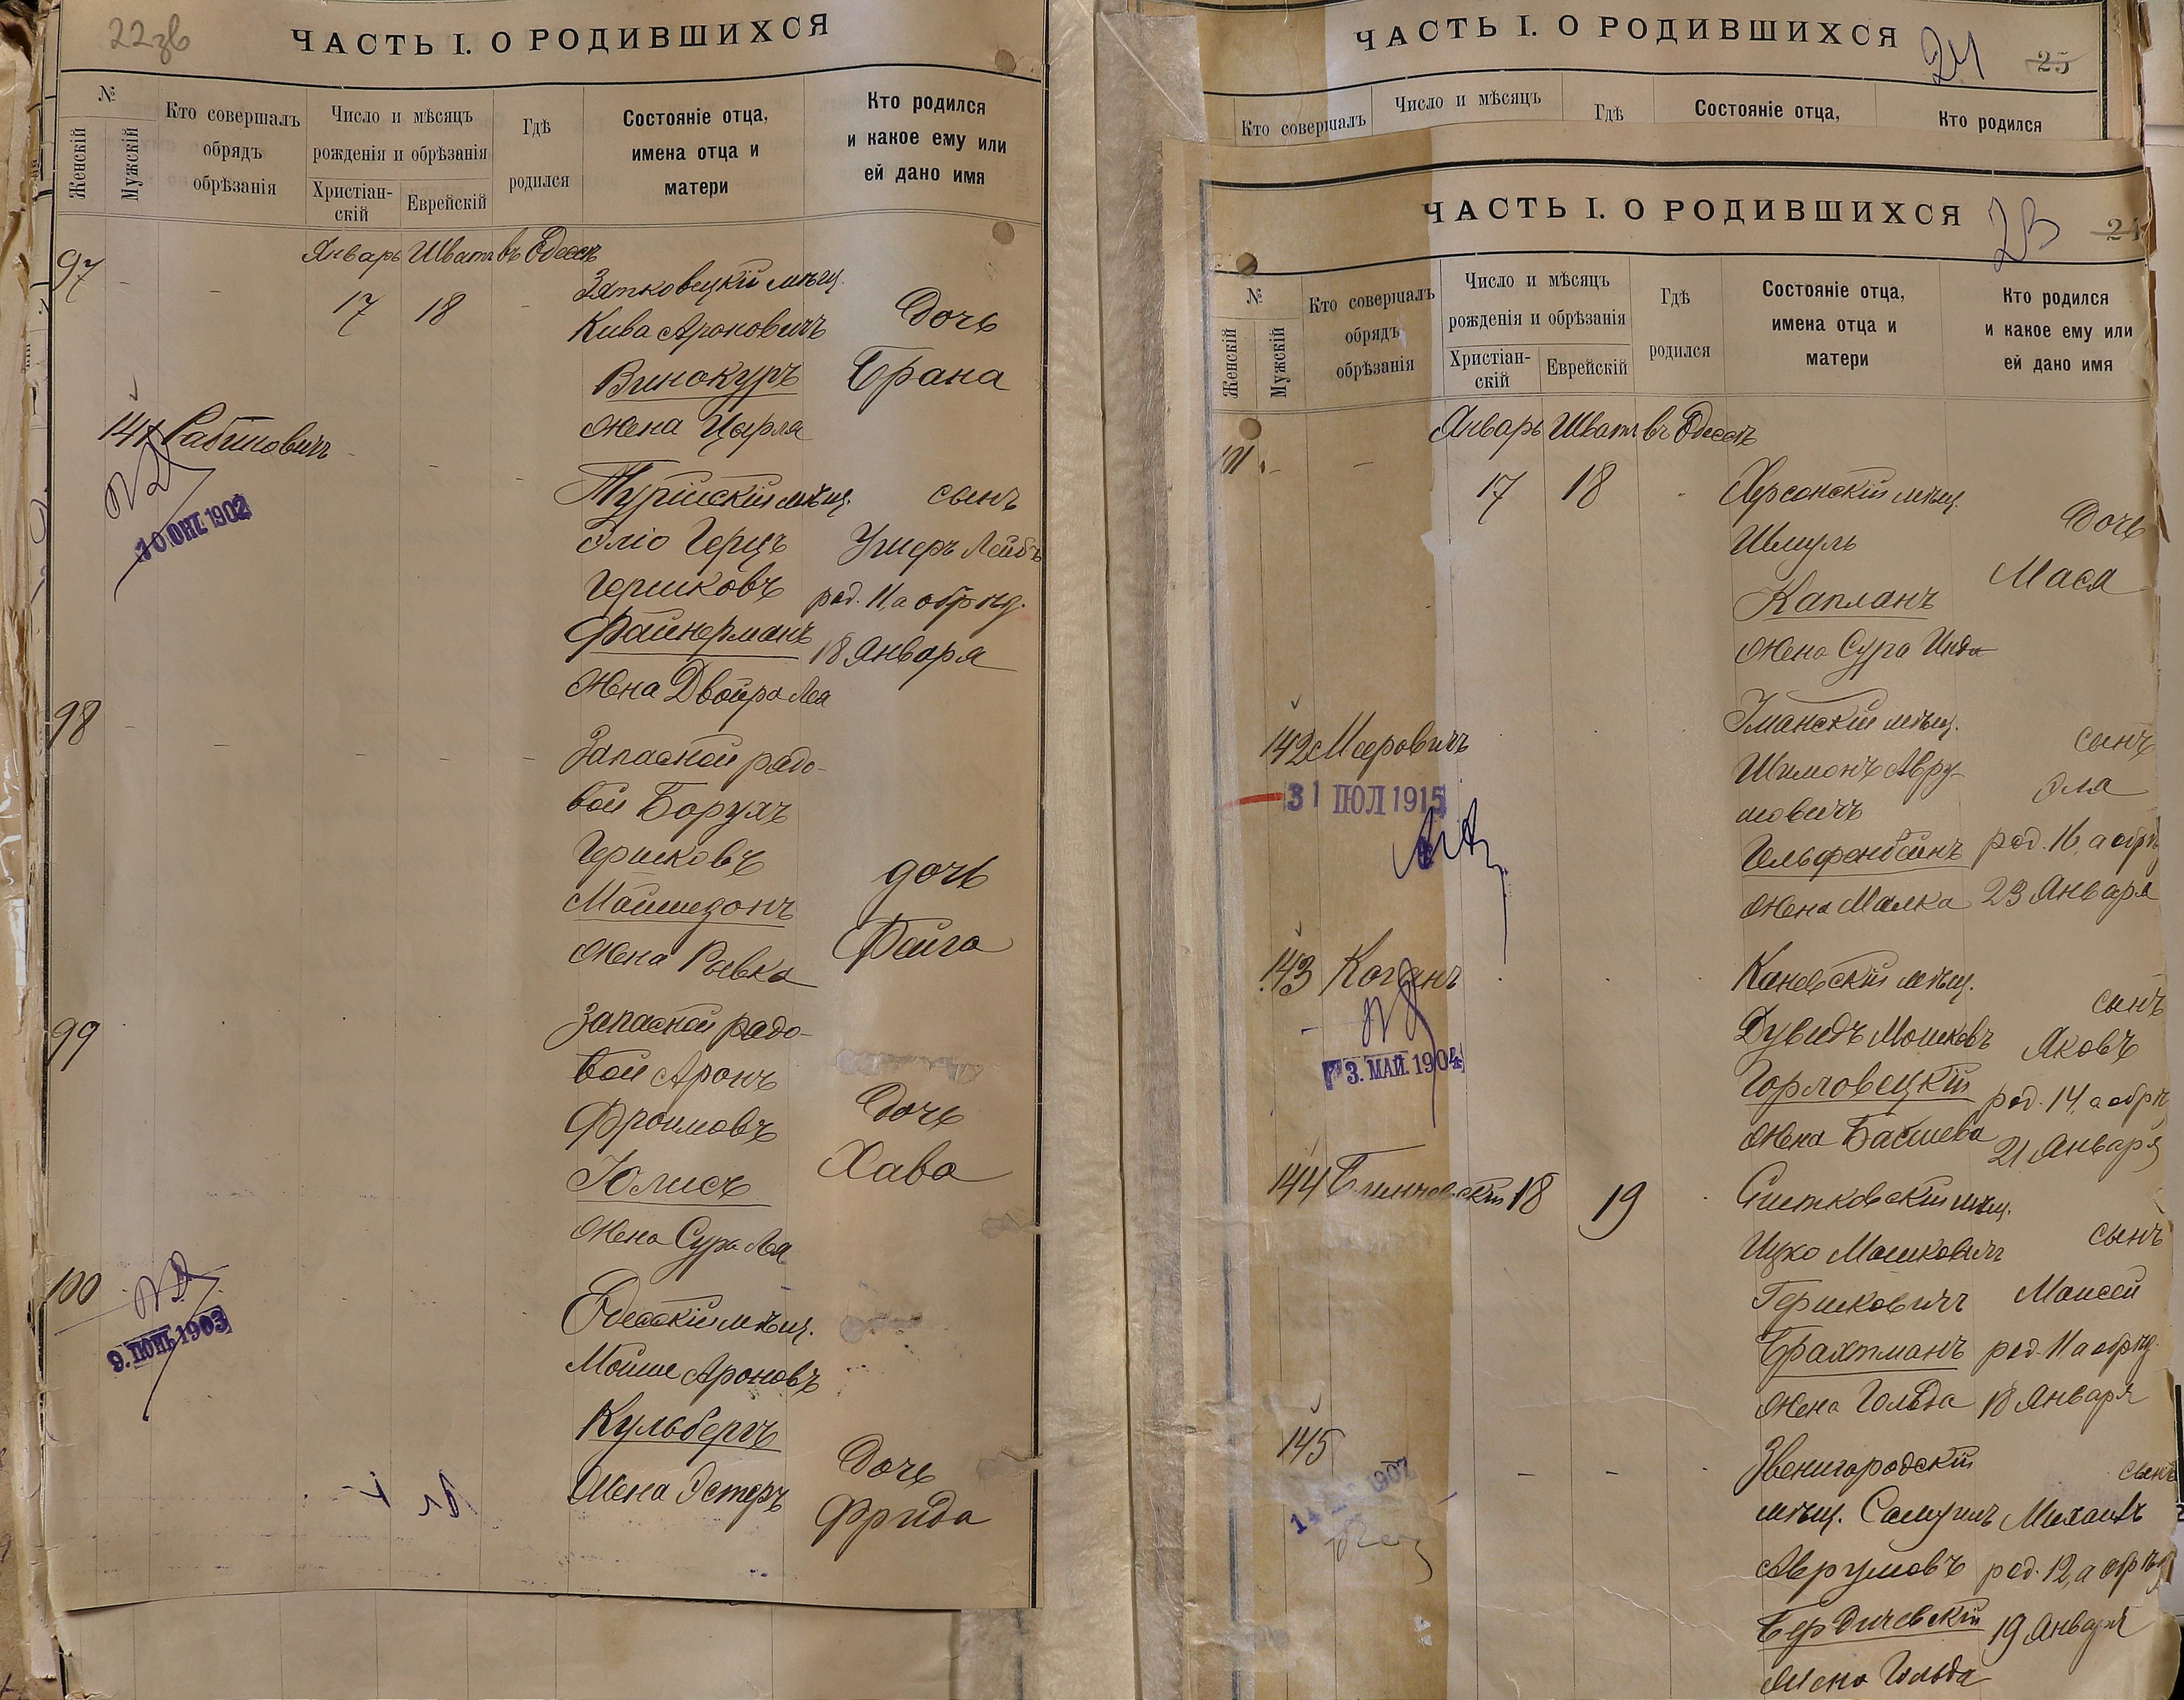 22зв
ЧАСТЬ I. О РОДИВШИХСЯ
№
Женскій
Мужскій
Кто совершалъ
обрядъ
обрѣзанія
Число и мѣсяцъ
рожденія и обрѣзанія
Христіан-
скій
Еврейскій
Гдѣ
родился
Состояніе отца,
имена отца и
матери
Кто родился
и какое ему или
ей дано имя
Январь Шватъ въ Одессѣ
97
17 18
Зятковецкій мѣщ.
Кива Ароновичъ
Винокуръ
жена Цирля
Дочь
Брана
141 Рабиновичъ
10 ОКТ. 1902
Турійскій мѣщ.
Эліо Герцъ
Гершковъ
Файнерманъ
жена Двойра Лея
сынъ
Ушеръ Лейбъ
род. 11, а обрѣз.
18 Января
98
Запасной рядо-
вой Борухъ
Гершковъ
Маймезонъ
жена Ривка
дочь
Фейга
99
Запасной рядо-
вой Аронъ
Фроимовъ
Юлисъ
жена Сура Лея
Дочь
Хава
100
9. ІЮНЬ 1903
Одесскій мѣщ.
Мойше Ароновъ
Кульбергъ
Жена Эстеръ
Дочь
Фрида
ЧАСТЬ I. О РОДИВШИХСЯ
24 25
Кто совершалъ
Число и мѣсяцъ
Гдѣ
Состояніе отца,
Кто родился
ЧАСТЬ I. О РОДИВШИХСЯ
23 24
№
Женскій
Мужскій
Кто совершалъ
обрядъ
обрѣзанія
Число и мѣсяцъ
рожденія и обрѣзанія
Христіан-
скій
Еврейскій
Гдѣ
родился
Состояніе отца,
имена отца и
матери
Кто родился
и какое ему или
ей дано имя
Январь Шватъ въ Одессѣ
101
17 18
Херсонскій мѣщ.
Шмуль
Капланъ
жена Сура Инда
Дочь
Мася
142 Мееровичъ
31 ІЮЛ 1915
Уманскій мѣщ.
Шимонъ Авру-
мовичъ
Гельфенбейнъ
жена Малка
сынъ
Эля
род. 16, а обрѣз
23 Января
143 Коганъ
3. МАЙ. 1904
Каневскій мѣщ.
Дувидъ Мошковъ
Горловецкій
жена Басшева
сынъ
Яковъ
род. 14, а обрѣз
21 Января
144
18 19
мѣщ.
Ицко Мошковичъ
Гершковичъ
Брахтманъ
жена Гольда
сынъ
Моисей
род. 11 а обрѣз.
18 Января
145
Звенигородскій
мѣщ. Самуилъ
Аврумовъ
Бердичевскій
жена Гольда
сынъ
Михаилъ
род. 12, а обрѣз
19 Января